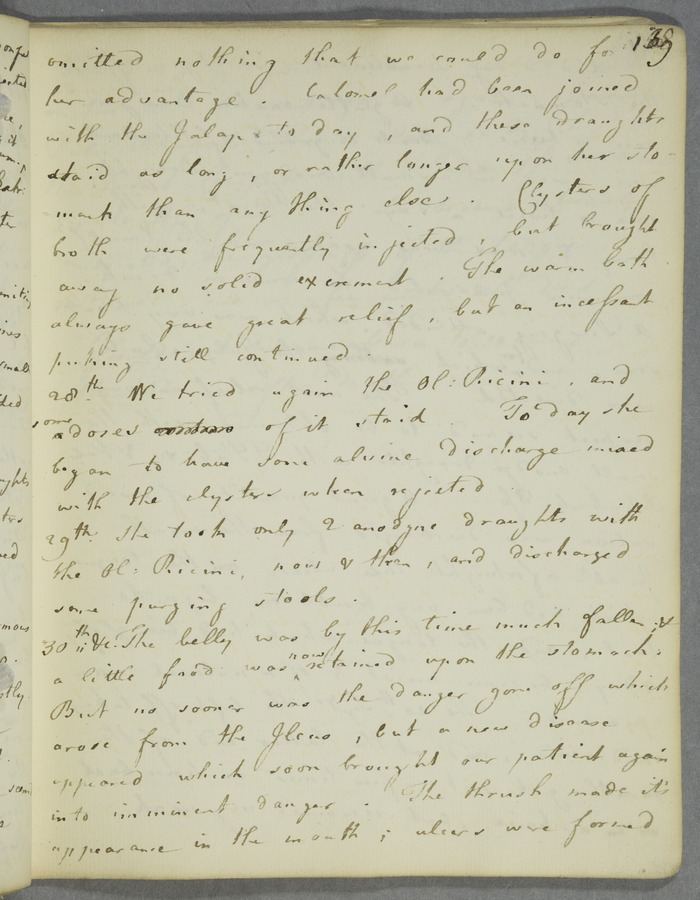 139
omitted nothing that we could do for
her advantage . Calomel had been joined
with the Jalap to day , and these draughts
staid as long , or rather longer upon her sto-
mach than any thing else . Clysters of
broth were frequently injected , but brought
away no solid excrement . The warm bath
always gave great relief , but an incessant
puking still continued .
28th We tried again the Ol: Ricini , and
some doses of it staid . To day she
began to have some alvine discharge mixed
with the clysters when rejected
29th She took only 2 anodyne draughts with
the Ol: Ricini, now & then , and discharged
some purging stools .
30th &c. The belly was by this time much fallen ; &
a little food was now retained upon the stomach :
But no sooner was the danger gone off which
arose from the Ileus , but a new disease
appeared which soon brought our patient again
into imminent danger . The thrush made it's
appearance in the mouth ; ulcers were formed